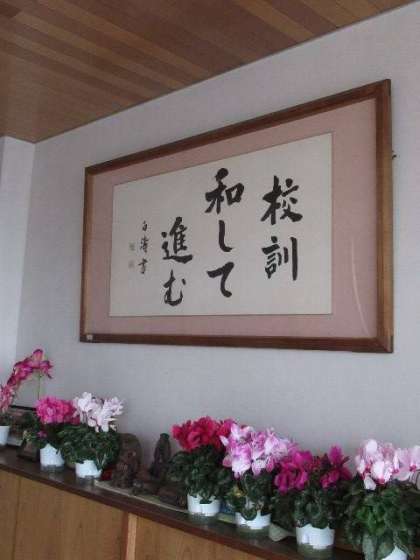 校訓
和して
進む
白濤書